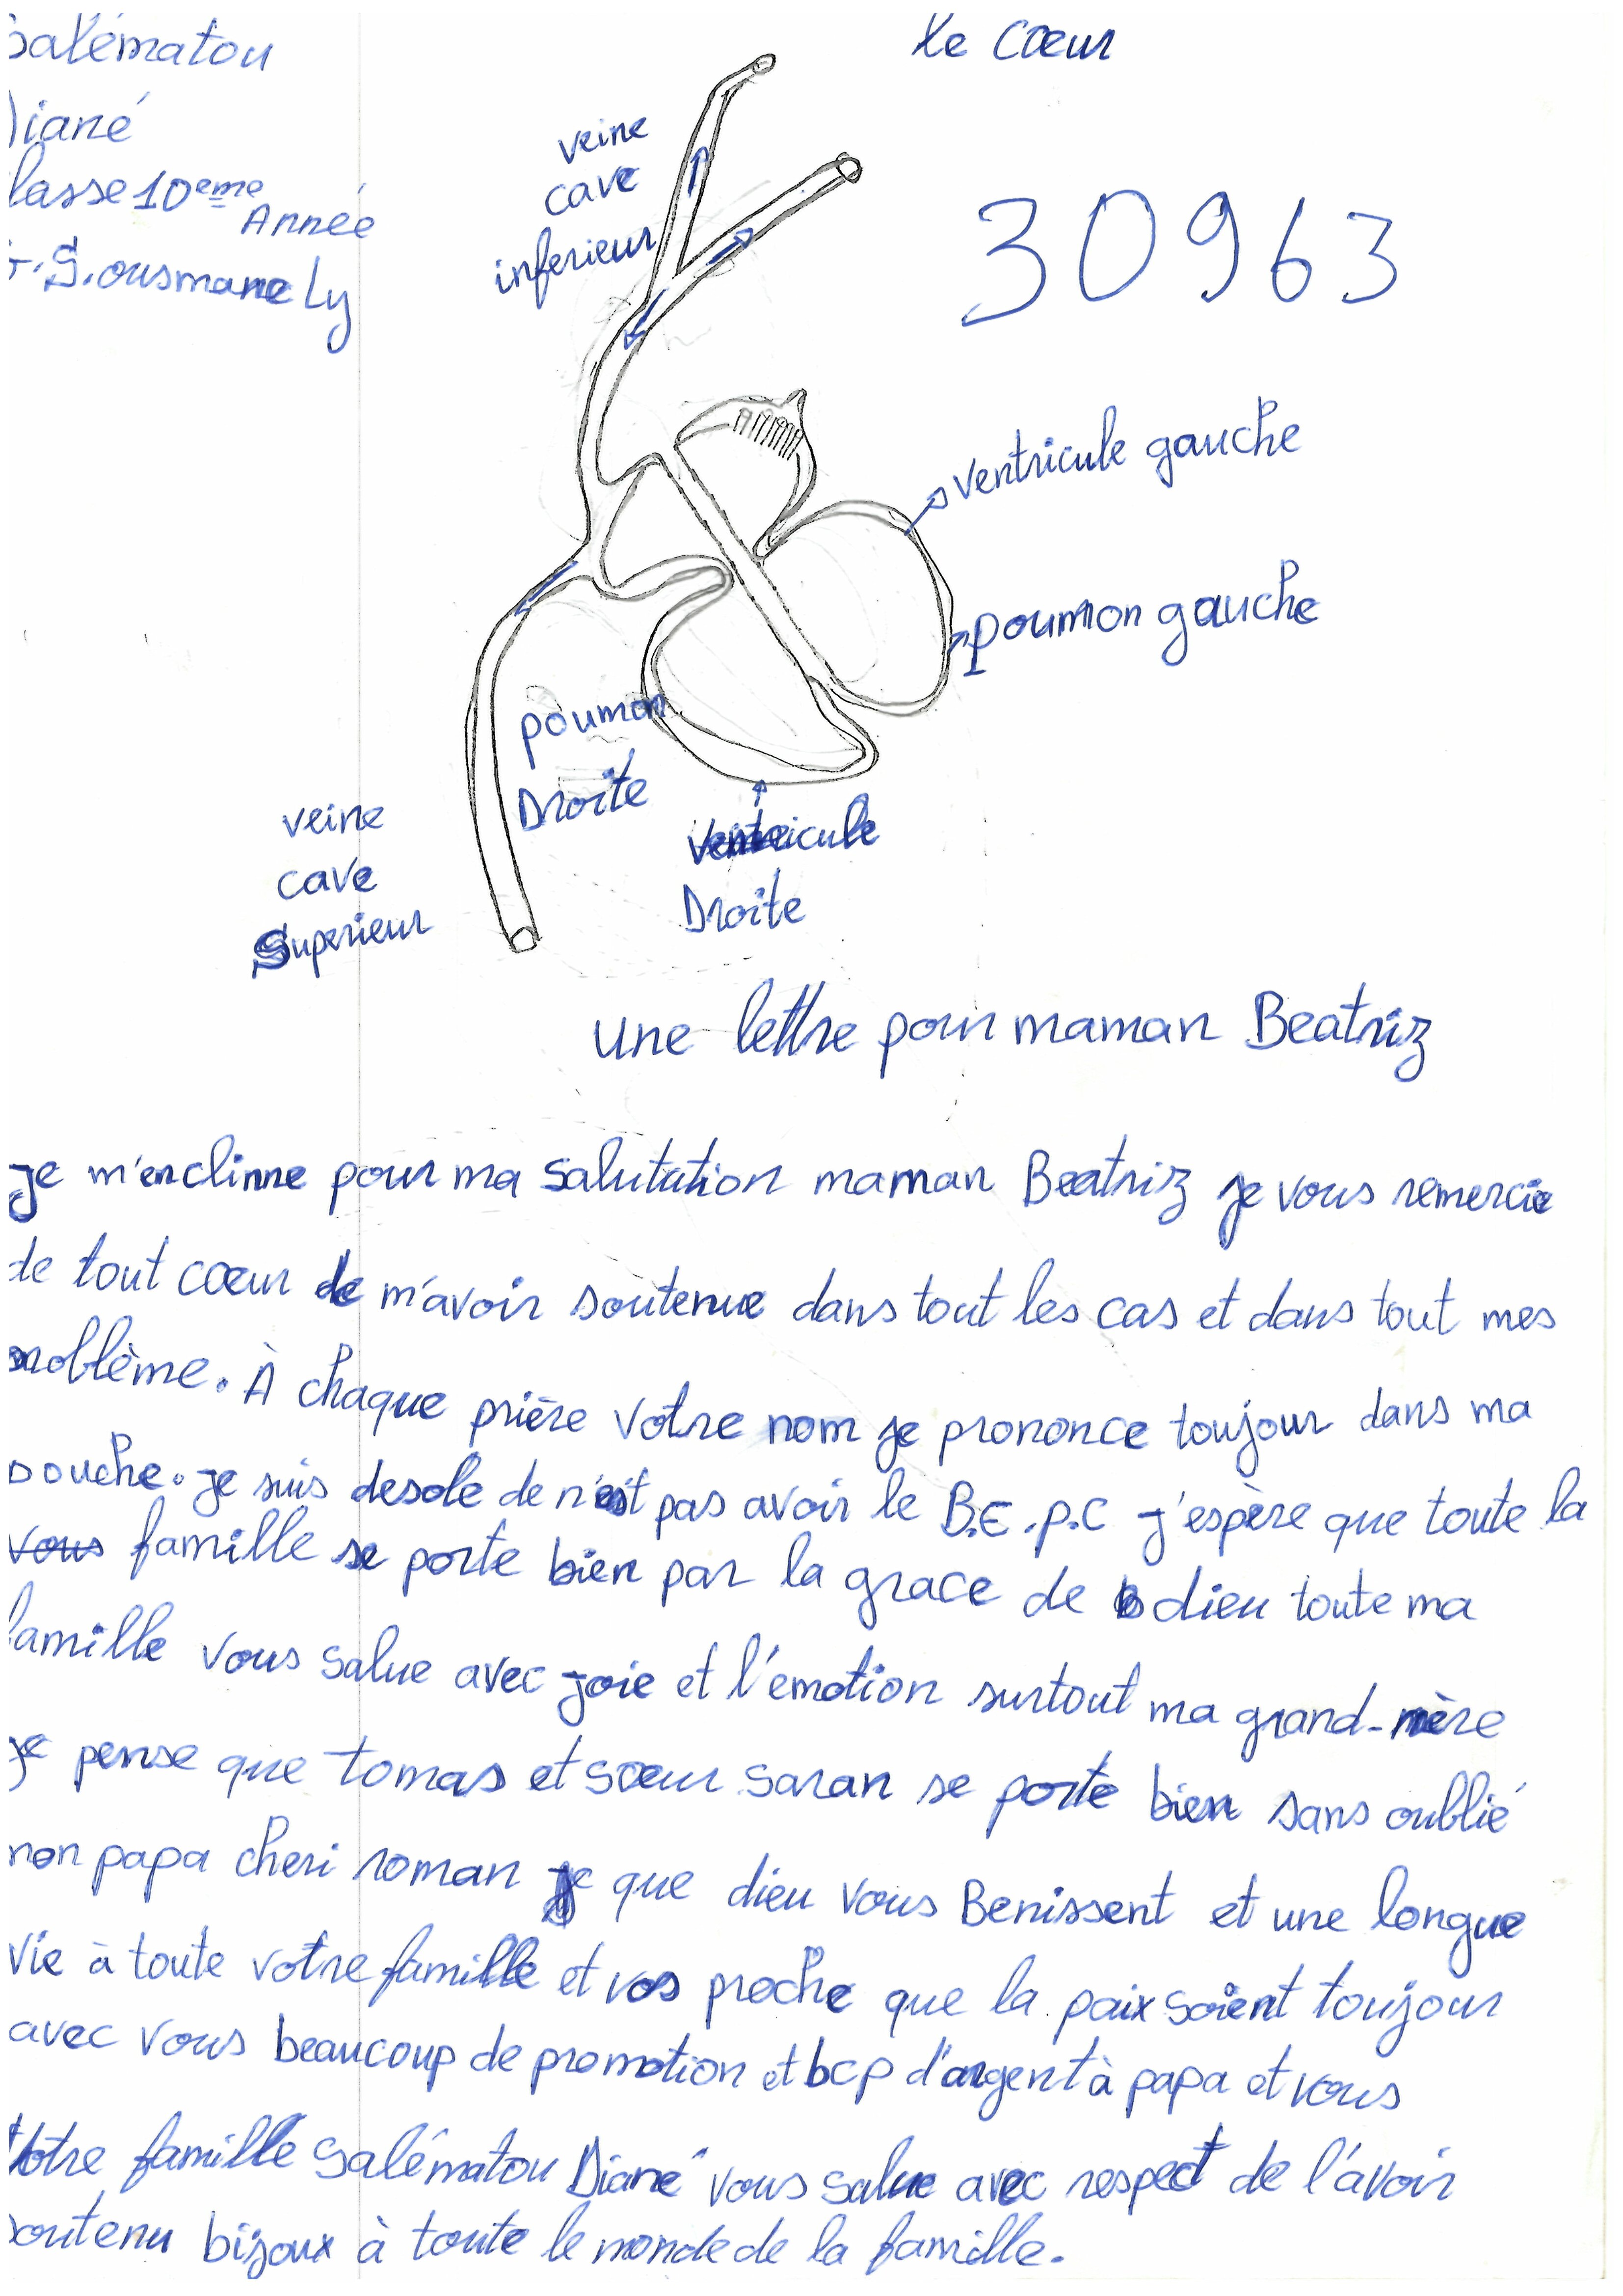 Salématou
Diané
Classe 10eme Année
G.S.ousmane Ly
le cœur
30963
veine
cave
inferieur
ventricule gauche
poumon gauche
poumon
Droite
ventricule
Droite
veine
cave
Superieur
une lettre pour maman Beatriz
je m'enclinne pour ma salutation maman Beatriz je vous remercie
de tout cœur de m'avoir soutenue dans tout les cas et dans tout mes
problème. À chaque prière votre nom je prononce toujour dans ma
bouche. je suis desole de n'est pas avoir le B.E.P.C j'espère que toute la
vous famille se porte bien par la grace de dieu toute ma
famille vous salue avec joie et l'émotion surtout ma grand-mère
je pense que tomas et sœur saran se porte bien sans oublié
mon papa cheri roman que dieu vous Benissent et une longue
vie à toute votre famille et vos proche que la paix soient toujour
avec vous beaucoup de promotion et bcp d'argent à papa et vous
Votre famille Salématou Diané vous salue avec respect de l'avoir
soutenu bijoux à toute le monde de la famille.